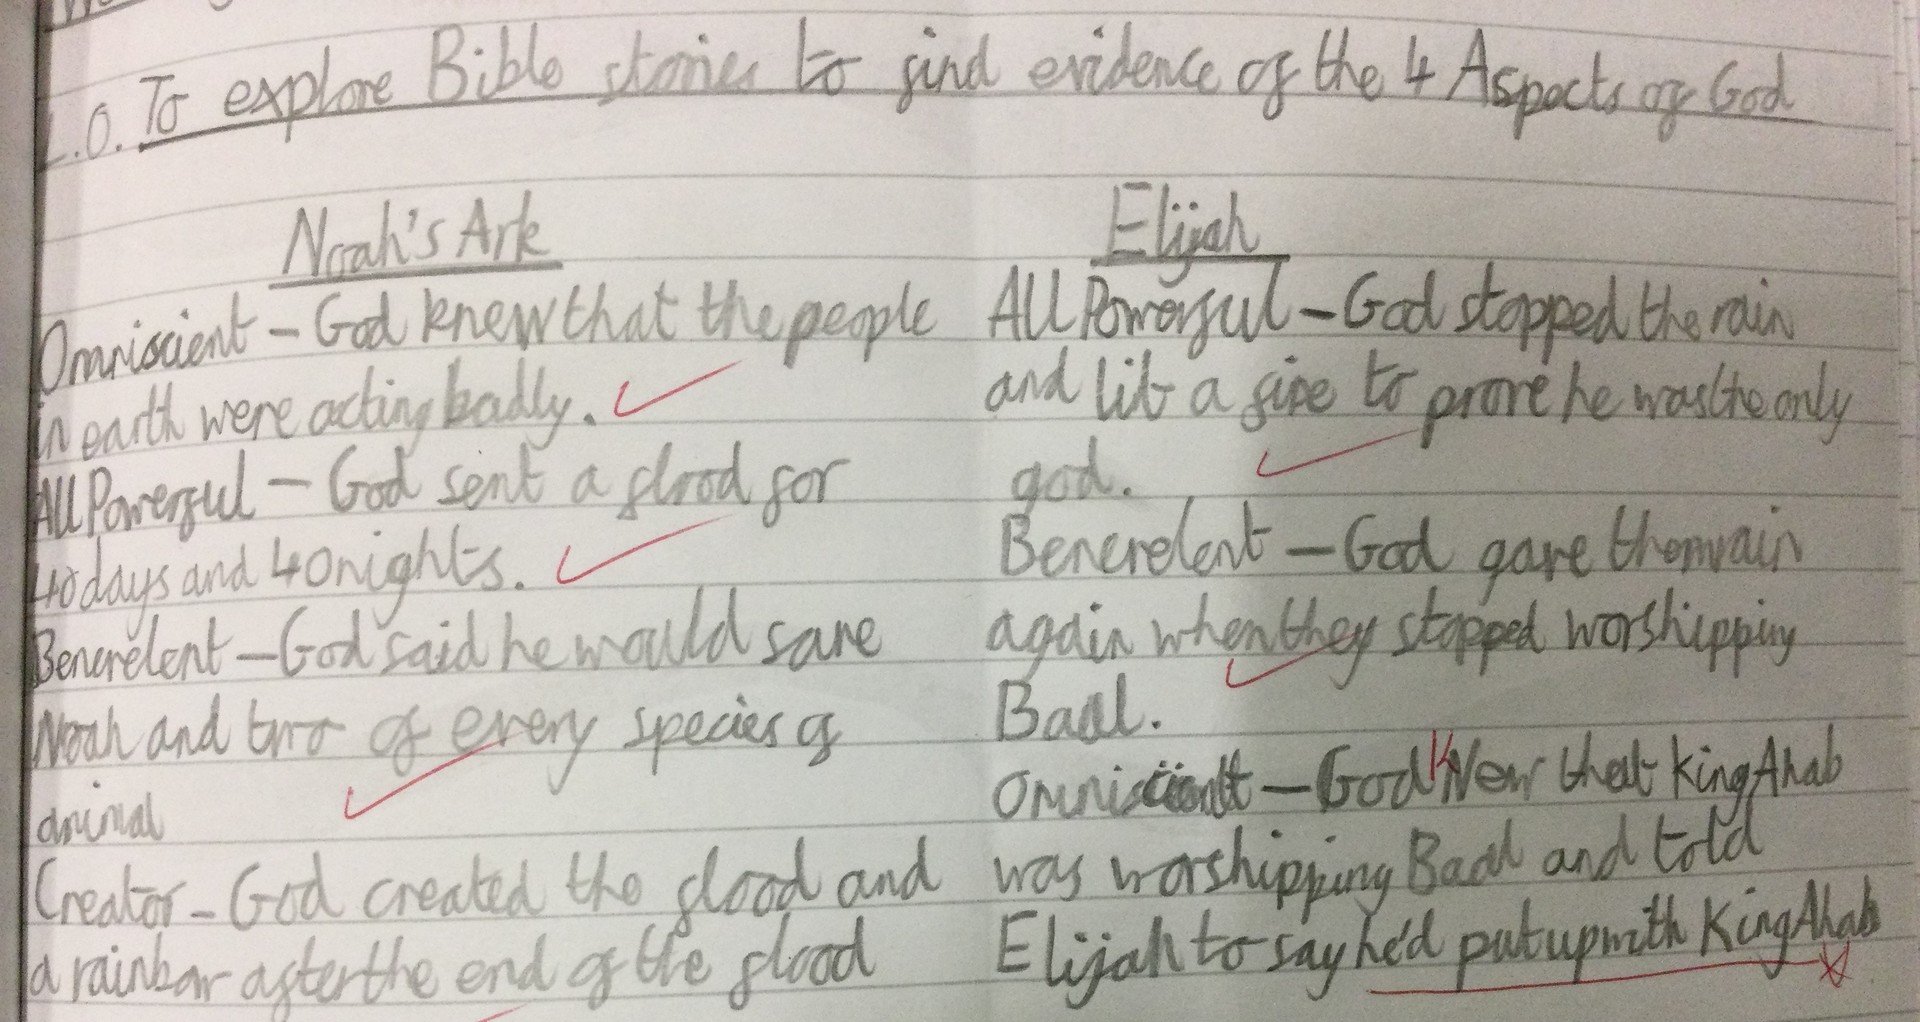 L.O. To explore Bible stories to find evidence of the 4 Aspects of God
Noah's Ark
Omniscient – God knew that the people
in earth were acting badly.
All Powerful – God sent a flood for
40 days and 40 nights.
Benevelent – God said he would save
Noah and two of every species of
animal
Creator – God created the flood and
a rainbow after the end of the flood
Elijah
All Powerful – God stopped the rain
and lit a fire to prove he was the only
god.
Benevelent – God gave them rain
again when they stopped worshipping
Baal.
Omniscient – God KNew that King Ahab
was worshipping Baal and told
Elijah to say he'd put up with King Ahab